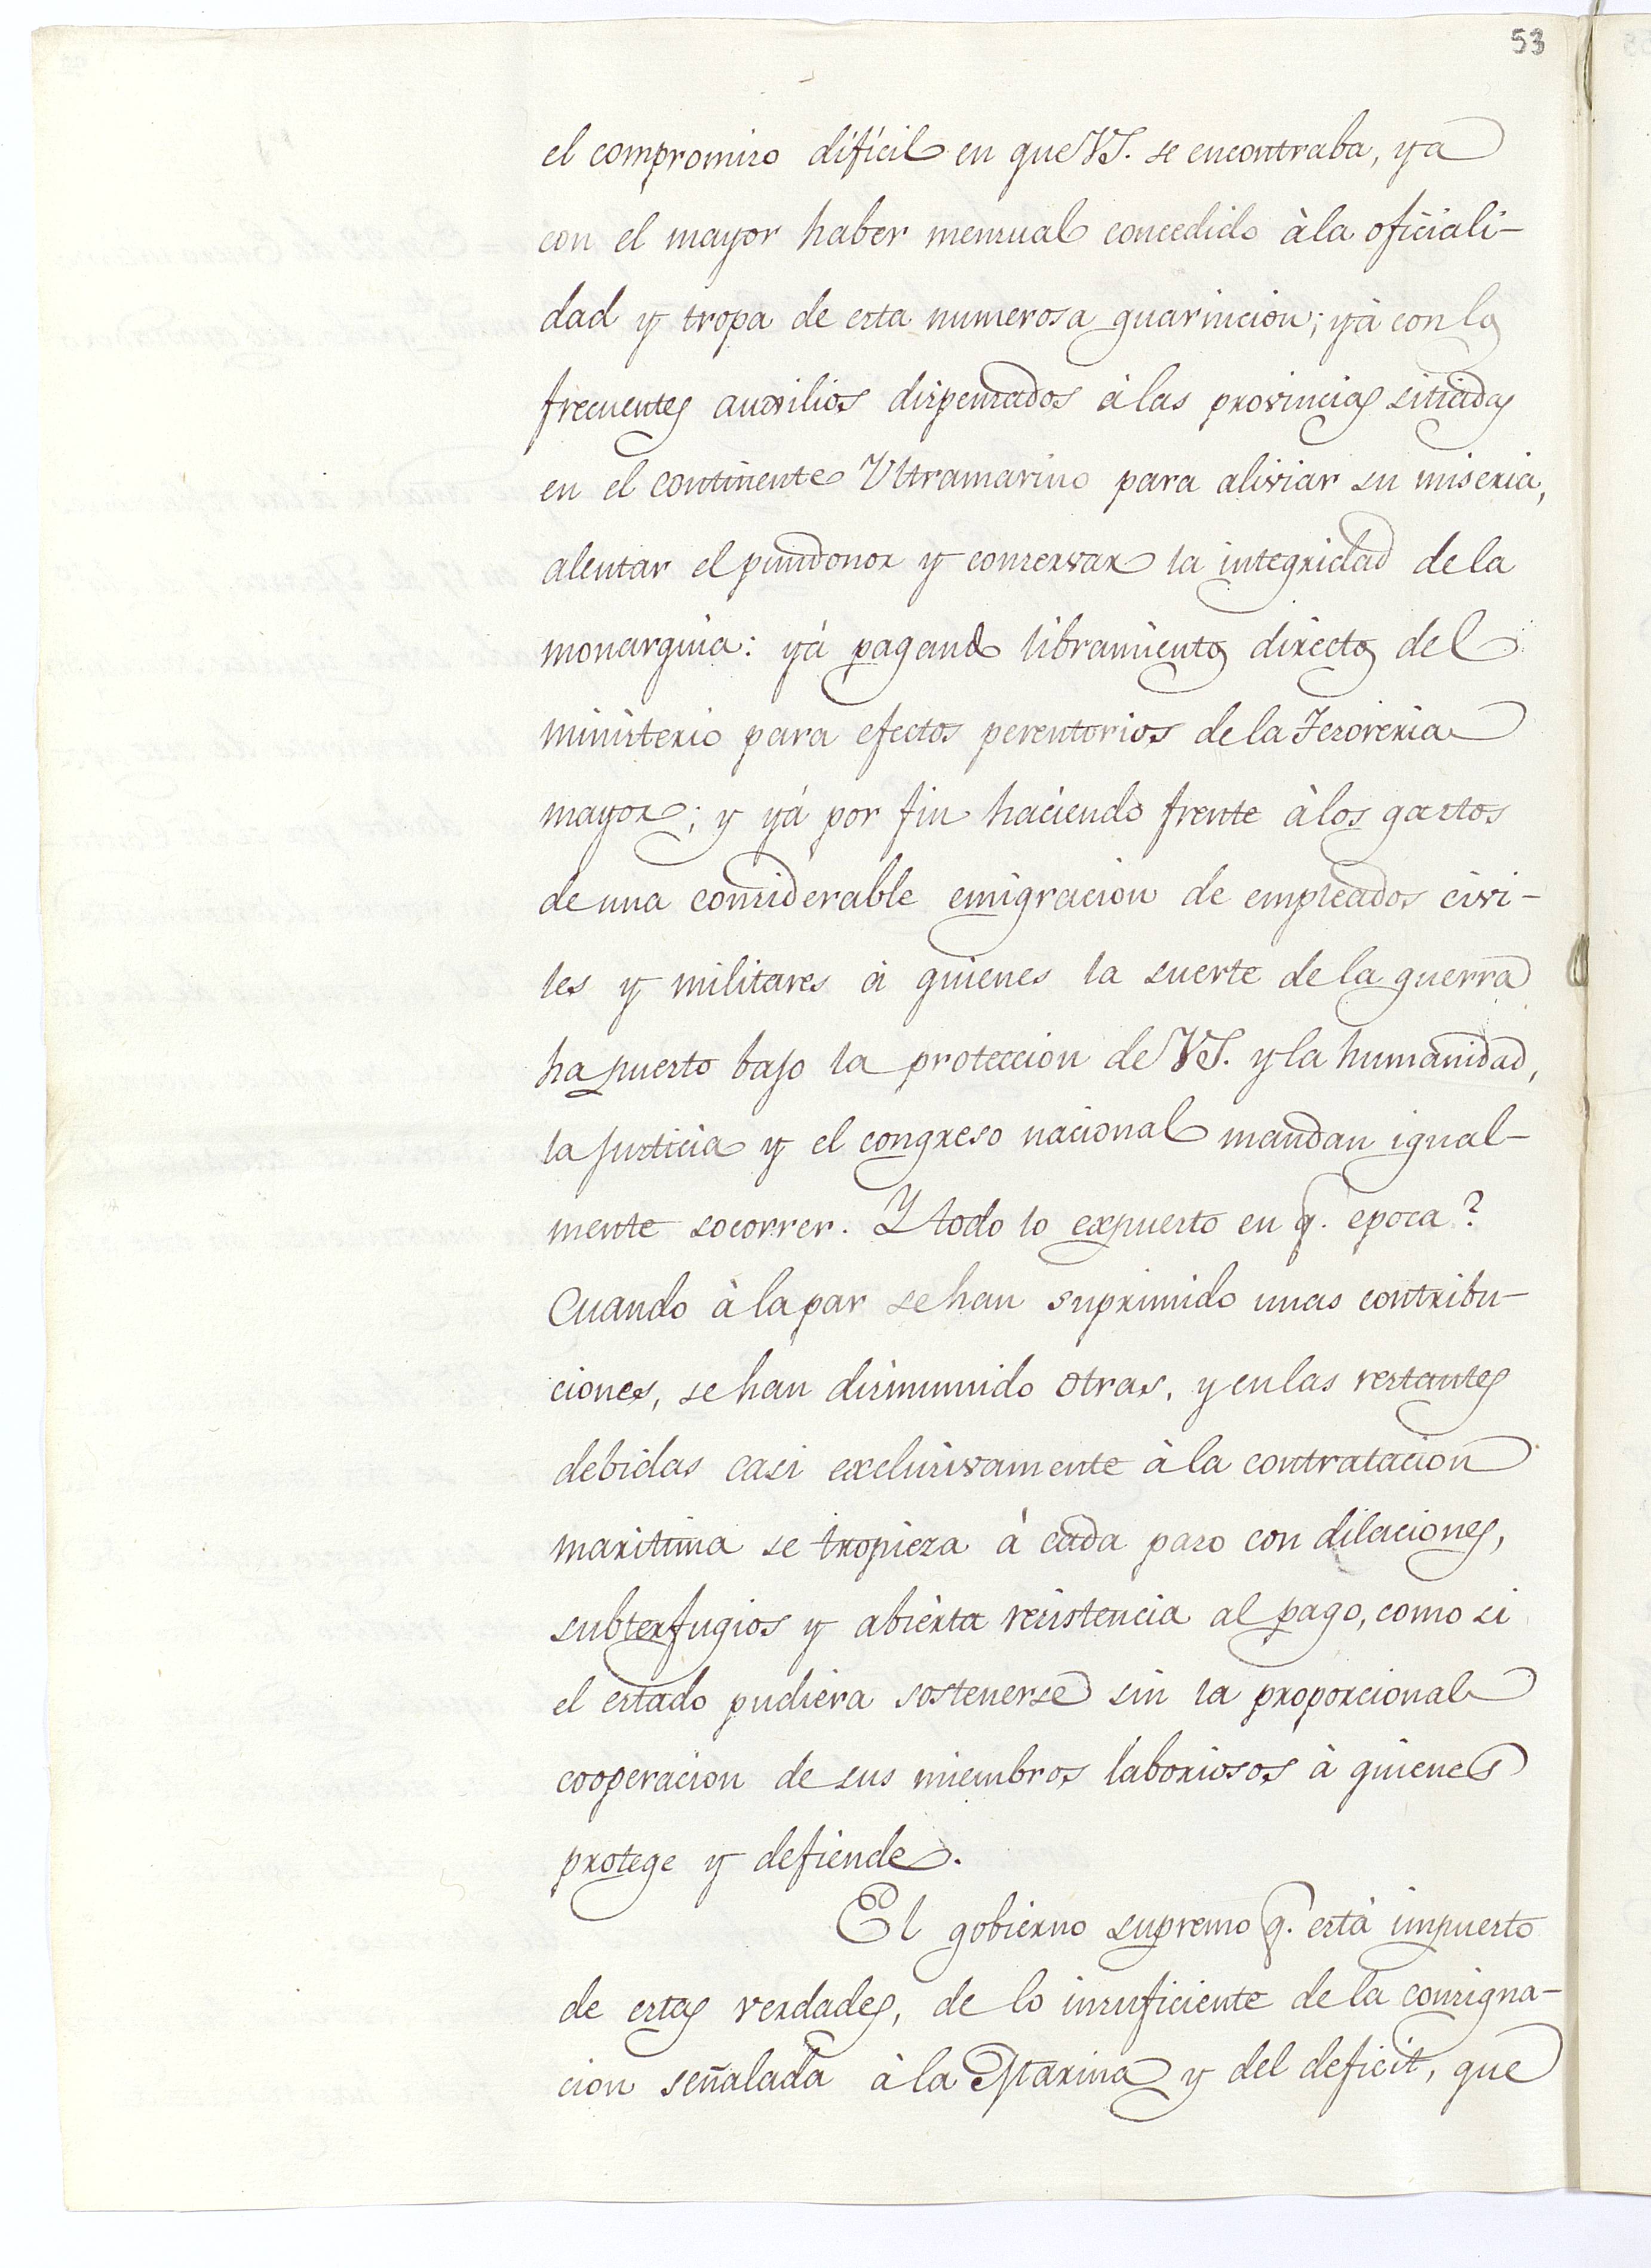 53
el compromiso difícil en que VS. se encontraba, ya
con el mayor haber mensual concedido à la oficiali-
dad y tropa de esta numerosa guarnicion; yà con los
frecuentes auxilios dispensados à las provincias sitiadas
en el continente Ultramarino para aliviar su miseria,
alentar el pundonor y conservar la integridad de la
monarquia: yá pagando libramientos directos del
ministerio para efectos perentorios de la Tesoreria
mayor; y yá por fin haciendo frente à los gastos
de una considerable emigracion de empleados civi-
les y militares à quienes la suerte de la guerra
ha puesto bajo la proteccion de VS. y la humanidad,
la justicia y el congreso nacional mandan igual-
mente socorrer. Y todo lo expuesto en q. epoca?
Cuando à la par se han suprimido unas contribu-
ciones, se han disminuido otras, y en las restantes
debidas casi exclusivamente à la contratacion
maritima se tropieza à cada paso con dilaciones,
subterfugios y abierta resistencia al pago, como si
el estado pudiera sostenerse sin la proporcional
cooperacion de sus miembros laboriosos à quienes
protege y defiende.
El gobierno supremo q. està impuesto
de estas verdades, de lo insuficiente de la consigna-
cion señalada à la Marina y del deficit, que